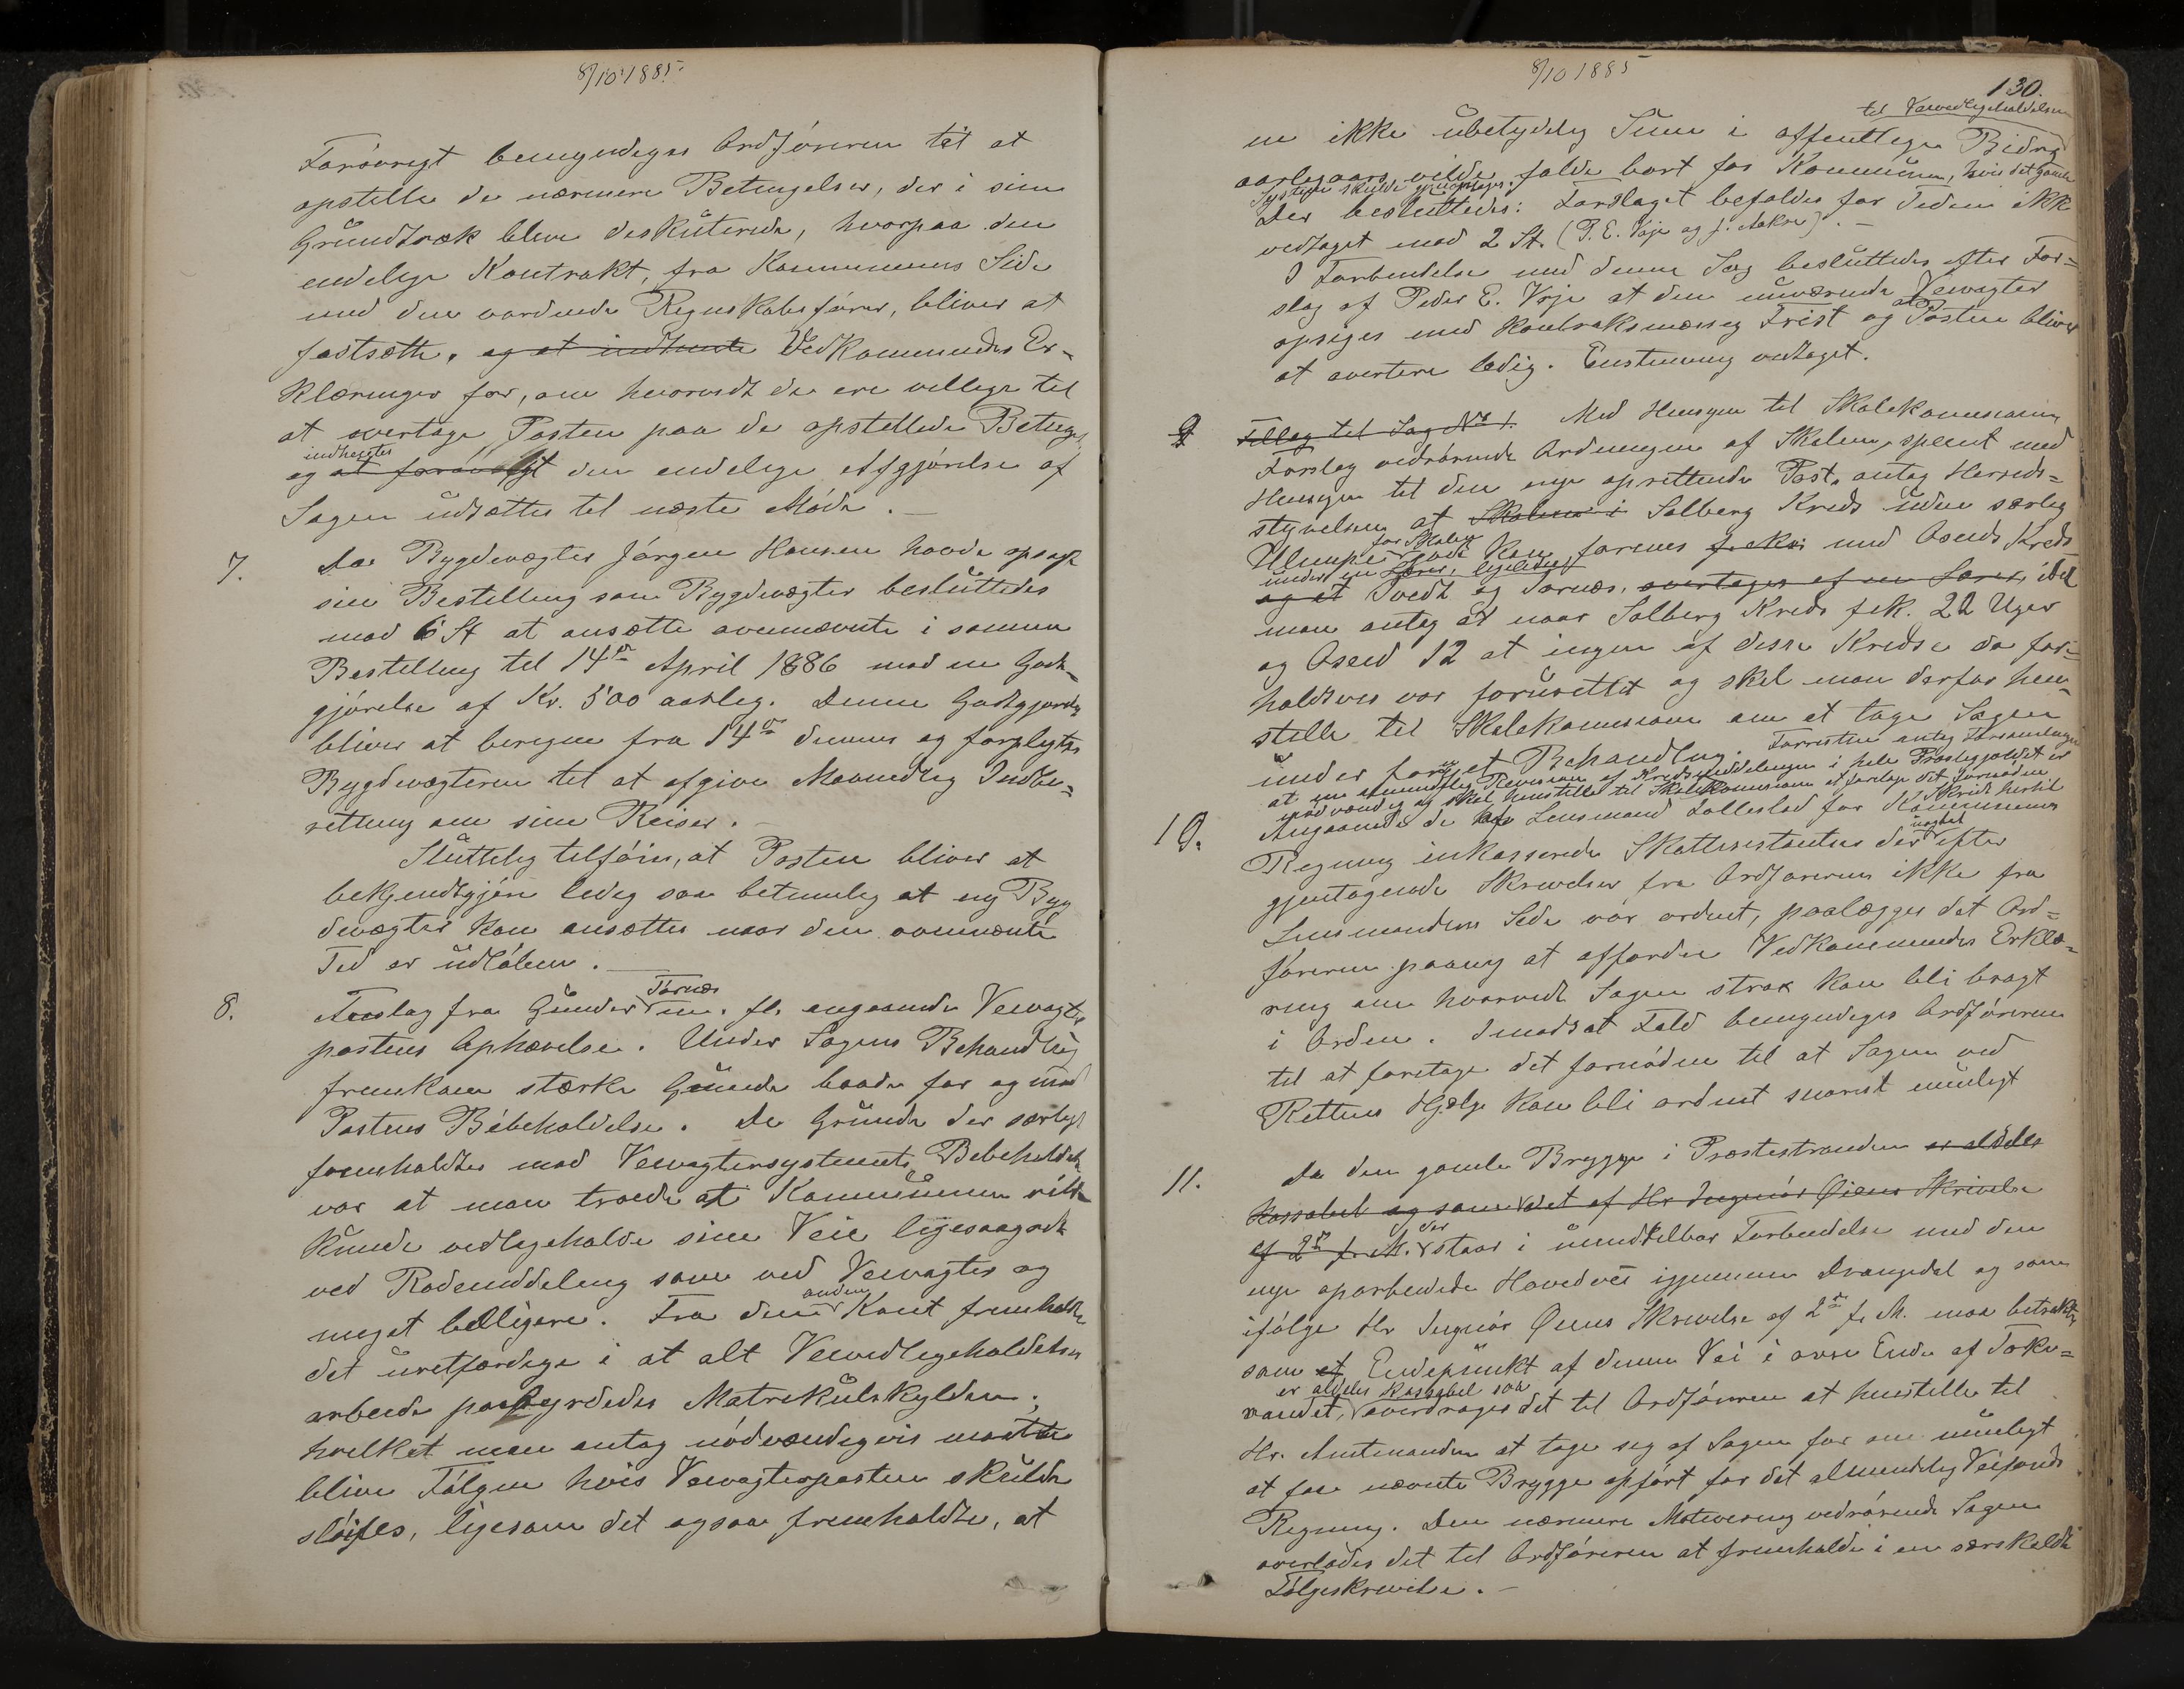 8/10 1885.
Forøvrigt bemyndiges Ordføreren til at
opstille de nærmere Betingelser, der i sine
Grundtræk bleve diskuterede, hvorpaa den
endelige Kontrakt, fra Kommunens Side
med den vordende Regnskabsfører, bliver at
fastsætte, og at indhente Vedkommendes Er-
klæringer for, om hvorvidt de ere villige til
at overtage Posten paa de opstillede Beting.
indhentes
og at forøvrigt den endelige Afgjørelse af
Sagen udsættes til næste Møde.
7. Da Bygdevægter Jørgen Hansen havde opsagt
sin Bestilling som Bygdevægter besluttedes
mod 6 St at ansætte ovennævnte i samme
Bestilling til 14de April 1886 mod en Godt-
gjørelse af Kr. 500 aarlig. Denne Godtgjørelse
bliver at beregne fra 14de dennes og forpligtes
Bygdevægteren til at afgive Maanedlig Indbe-
retning om sine Reiser.
Sluttelig tilføies, at Posten bliver at
bekjendtgjøre ledig saa betimelig at ny Byg
devægter kan ansættes naar den ovennævnte
Tid er udløben.
Tørnæs
8. Andrag fra Gunder m. fl. angaaende Veivogter
postens Ophævelse. Under Sagens Behandling
fremkom stærke Grunde baade for og mod
Postens Bibeholdelse. De Grunde der særligt
fremholdtes mod Veivogtersystemets Bibeholdelse
var at man troede at Kommunen vilde
kunde vedligeholde sine Veie ligesaagodt
ved Rodeinddeling som ved Veivogter og
anden
meget billigere. Fra den Kant fremholdtes
det uretfærdige i at alt Veivedligeholdelses
arbeide paabyrdedes Matrikulskylden,
hvilket man antog nødvendigvis maatte
blive Følgen hvis Veivogterposten skulde
sløifes, ligesom det ogsaa fremholdtes, at
8/10 1885
130.
til Veivedligeholdelsen
en ikke ubetydelig Sum i offentlige Bidrag
aarligaars vilde falde bort for Kommunen, hvis det gamle
Systemet skulde gjenoptages.
Der besluttedes: Forslaget befaldes for Tiden ikke
vedtaget mod 2 St. (P. E. Voje og J. Aakre).
I Forbindelse med denne Sag besluttedes efter For-
slag af Peder E. Voje at den nuværende Veivogter
opsiges med kontraktsmæssig Frist og at Posten bliver
at avertere ledig. Enstemmig vedtaget.
9 Tillæg til Sag No 1. Med Hensyn til Skolekommissionens
Forslag vedrørende Ordningen af Skolen, specielt med
Hensyn til den nye oprettende Post, antog Herreds-
styrelsen at Skolen i Solberg Kreds uden særlig
for Skolen
Ulempe godt kan forenes med Aasens Kreds
under en Lærer, ligeledes
og at Tvedt og Tørnæs, overtages af en Lærer, idet
man antog at naar Solberg Kreds fik 22 Uger
og Aasen 12 at ingen af disse Kredse da for-
holdsvis var forurettet og skal man derfor hen-
stille til Skolekommissionen om at tage Sagen
under fornyet Behandling. Forresten antog Forsamlingen
at en almindelig Revision af Kredsinddelingen i hele Præstegjældet er
nødvendig og skal henstille til Skolekommissionen at foretage det fornødne
Skridt hertil
10. Angaaende de af Lensmand Tollefsen for Kommunens
Regning inkasserede Skatterestantser der uagtet efter
gjentagende Skrivelser fra Ordføreren ikke fra
Lensmandens Side var ordnet, paalægges det Ord-
føreren paany at affordre Vedkommendes Erklæ-
ring om hvorvidt Sagen strax kan bli bragt
i Orden. I modsat Fald bemyndiges Ordføreren
til at foretage det fornødne til at Sagen ved
Rettens Hjælp kan bli ordnet snarest muligt
11. Da den gamle Brygge i Præstestranden er aldeles
kassabel og som det af Hr Ingeniør Øiens Skrivelse
af 2den f. M. der staar i umiddelbar Forbindelse med den
nye oparbeidede Hovedvei igjennem Drangedal og som
ifølge Hr Ingeniør Øiens Skrivelse af 2den f. M. maa betragtes
som et Endepunkt af denne Vei i øvre Ende af Toke-
er aldeles kassabel saa
vandet, overdrages det til Ordføreren at henstille til
Hr. Amtmanden at tage sig af Sagen for om muligt
at faa nævnte Brygge opført for det almindelig Veifonds
Regning. Den nærmere Motivering vedrørende Sagen
overlades det til Ordføreren at fremholde i en særskildt
Følgeskrivelse.